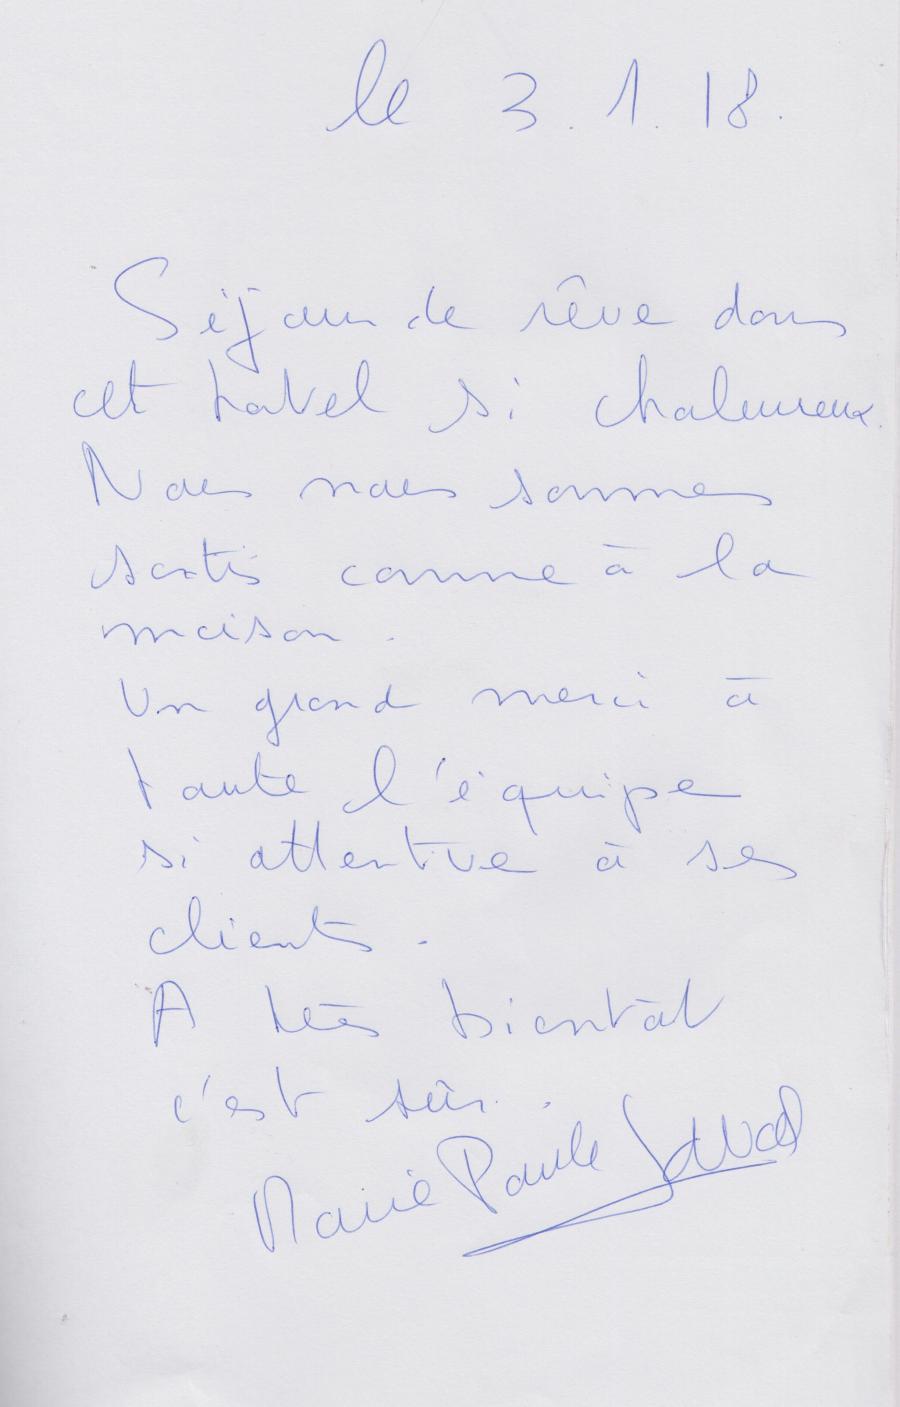 le 3.1.18.
Séjour de rêve dans
cet hotel si chaleureux.
Nous nous sommes
sentis comme à la
maison.
Un grand merci à
toute l'équipe
si attentive à ses
clients.
A très bientôt
c'est sûr.
Marie Paule